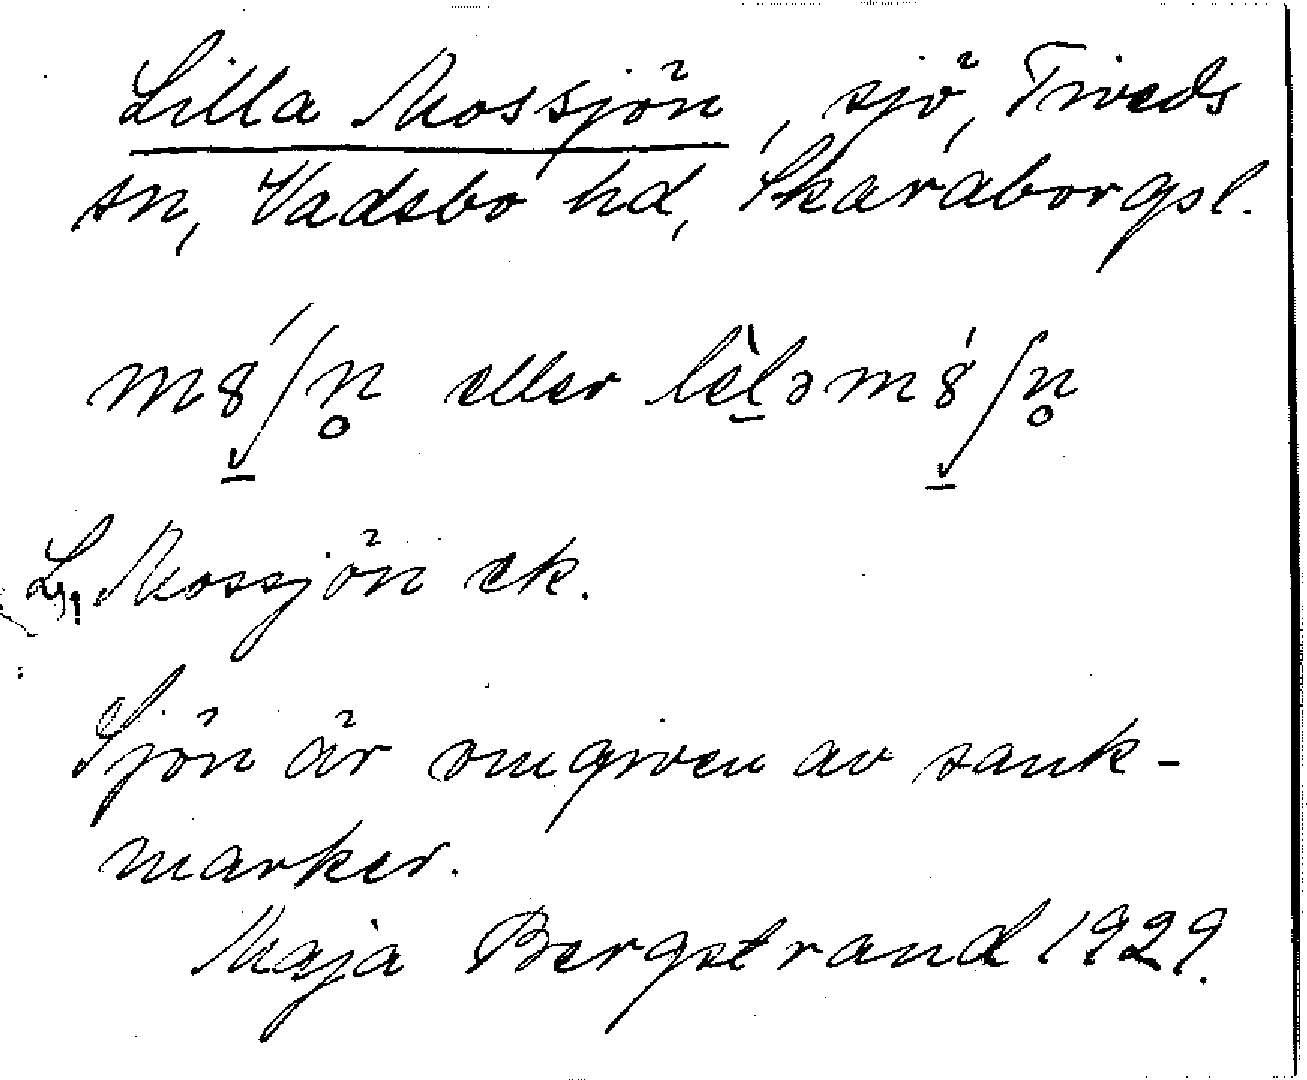 Lilla Mossjön, sjö, Tiveds
sn, Vadsbo hd, Skaraborgsl.
eller
L. Mossjön ek.
Sjön är omgiven av sank-
marker.
Maja Bergstrand 1929.